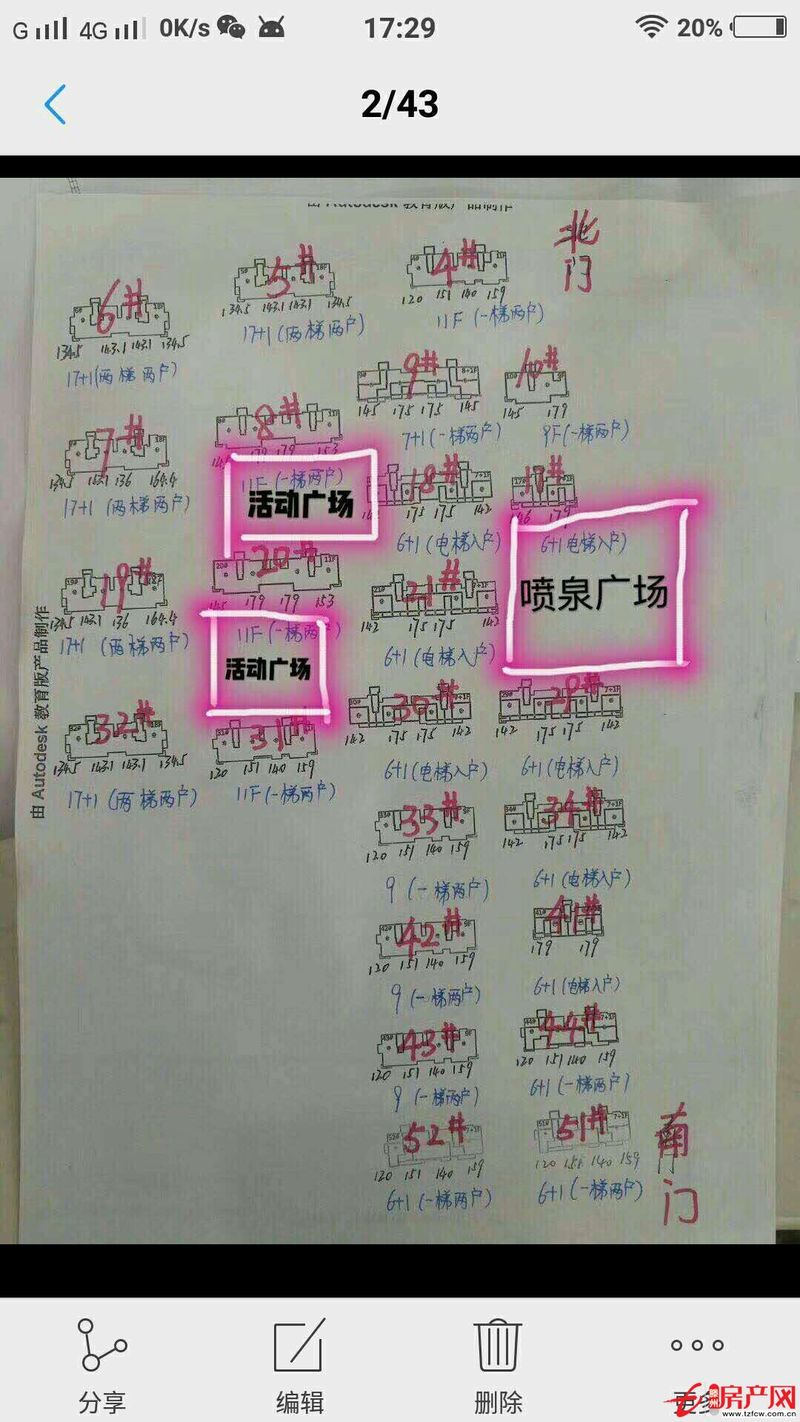 G 4G 0K/s 17:29 20%
2/43
由 Autodesk 教育版产品制作
北门
6#
134.5 143.1 143.1 134.5
17+1(两梯两户)
5#
134.5 143.1 143.1 134.5
17+1(两梯两户)
4#
120 151 140 159
11F(一梯两户)
9#
145 175 175 145
7+1(一梯两户)
10#
145 179
9F(一梯两户)
7#
134.5 143.1 136 164.4
17+1(两梯两户)
8#
179 179 153
11F(一梯两户)
活动广场
18#
175 175 142
6+1(电梯入户)
17#
179
6+1(电梯入户)
喷泉广场
19#
134.5 143.1 136 164.4
17+1(两梯两户)
20#
179 179 153
11F(一梯两户)
活动广场
21#
142 175 175 142
6+1(电梯入户)
由 Autodesk 教育版产品制作
32#
134.5 143.1 143.1 134.5
17+1(两梯两户)
31#
120 151 140 159
11F(一梯两户)
30#
142 175 175 142
6+1(电梯入户)
29#
142 175 175 142
6+1(电梯入户)
33#
120 151 140 159
9(一梯两户)
34#
142 175 175 142
6+1(电梯入户)
42#
120 151 140 159
9(一梯两户)
41#
179 179
6+1(电梯入户)
43#
120 151 140 159
9(一梯两户)
44#
120 151 140 159
6+1(一梯两户)
52#
120 151 140 159
6+1(一梯两户)
51#
120 151 140 159
6+1(一梯两户)
南门
分享 编辑 删除 更多
房产网
www.tzfcw.com.cn